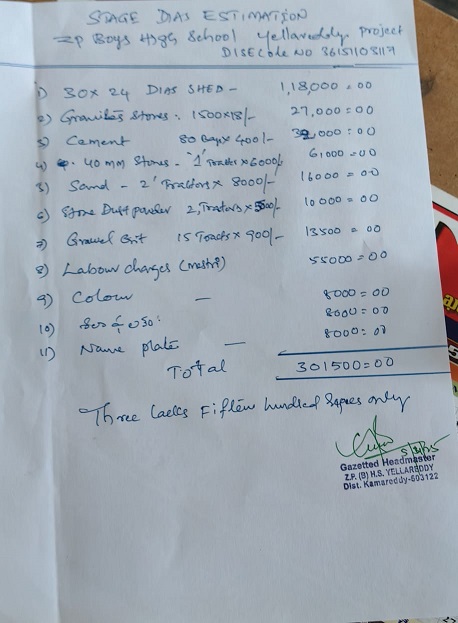 STAGE DIAS ESTIMATION
ZP Boys High School Yellareddy Project
DISE Code NO 36151103117
1) 30x24 DIAS SHED - 1,18,000=00
2) Stones: 1500x18/- 27,000=00
3) Cement 80 Bagsx 400/- 32,000=00
4) 40 mm Stones - 1 Tractor x6000/- 6,000=00
5) Sand - 2 Tractors x 8000/- 16000=00
6) Stone Dust powder 2, Tractors x 5000/- 10000=00
7) Gravel Grit 15 x 900/- 13500=00
8) Labour charges (mestri) 55000=00
9) Colour - 8000=00
10) 8000=00
11) Name plate - 8000=00
Total 301500=00
Three Lacks Fifteen hundred only
Gazetted Headmaster
Z.P. (B) H.S. YELLAREDDY
Dist. Kamareddy-503122